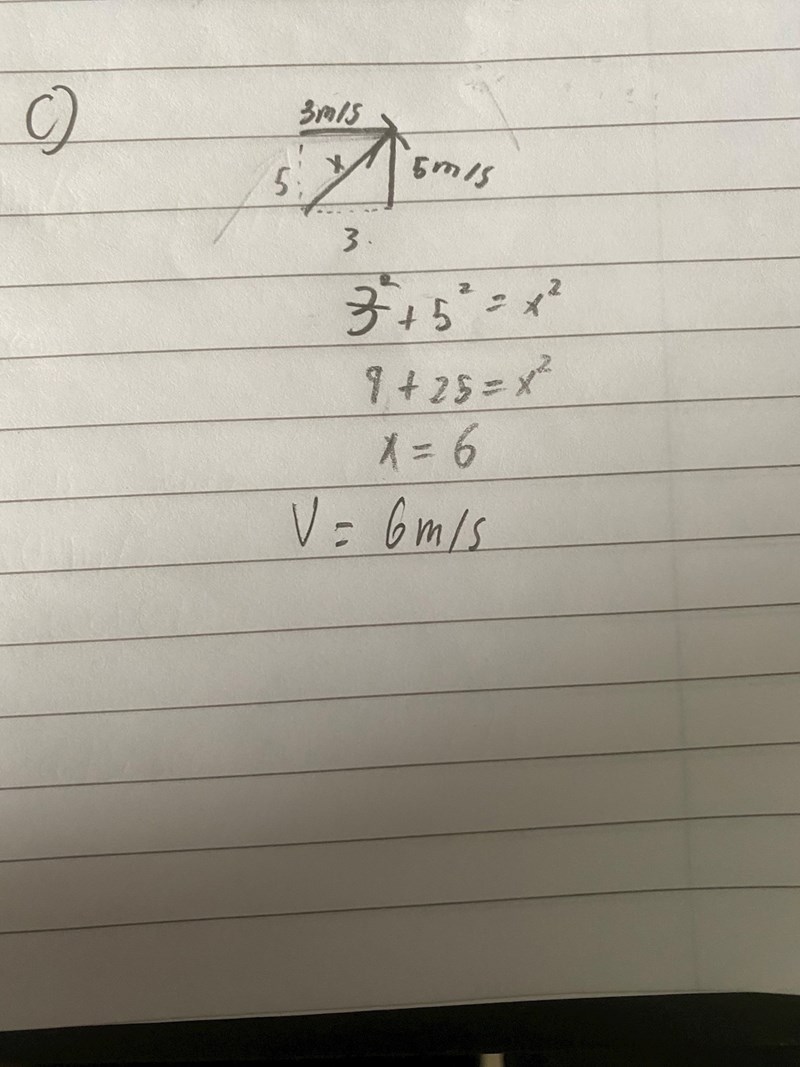 C)
3m/s
x
5
5m/s
3.
3² + 5² = x²
9 + 25 = x²
x = 6
V = 6m/s